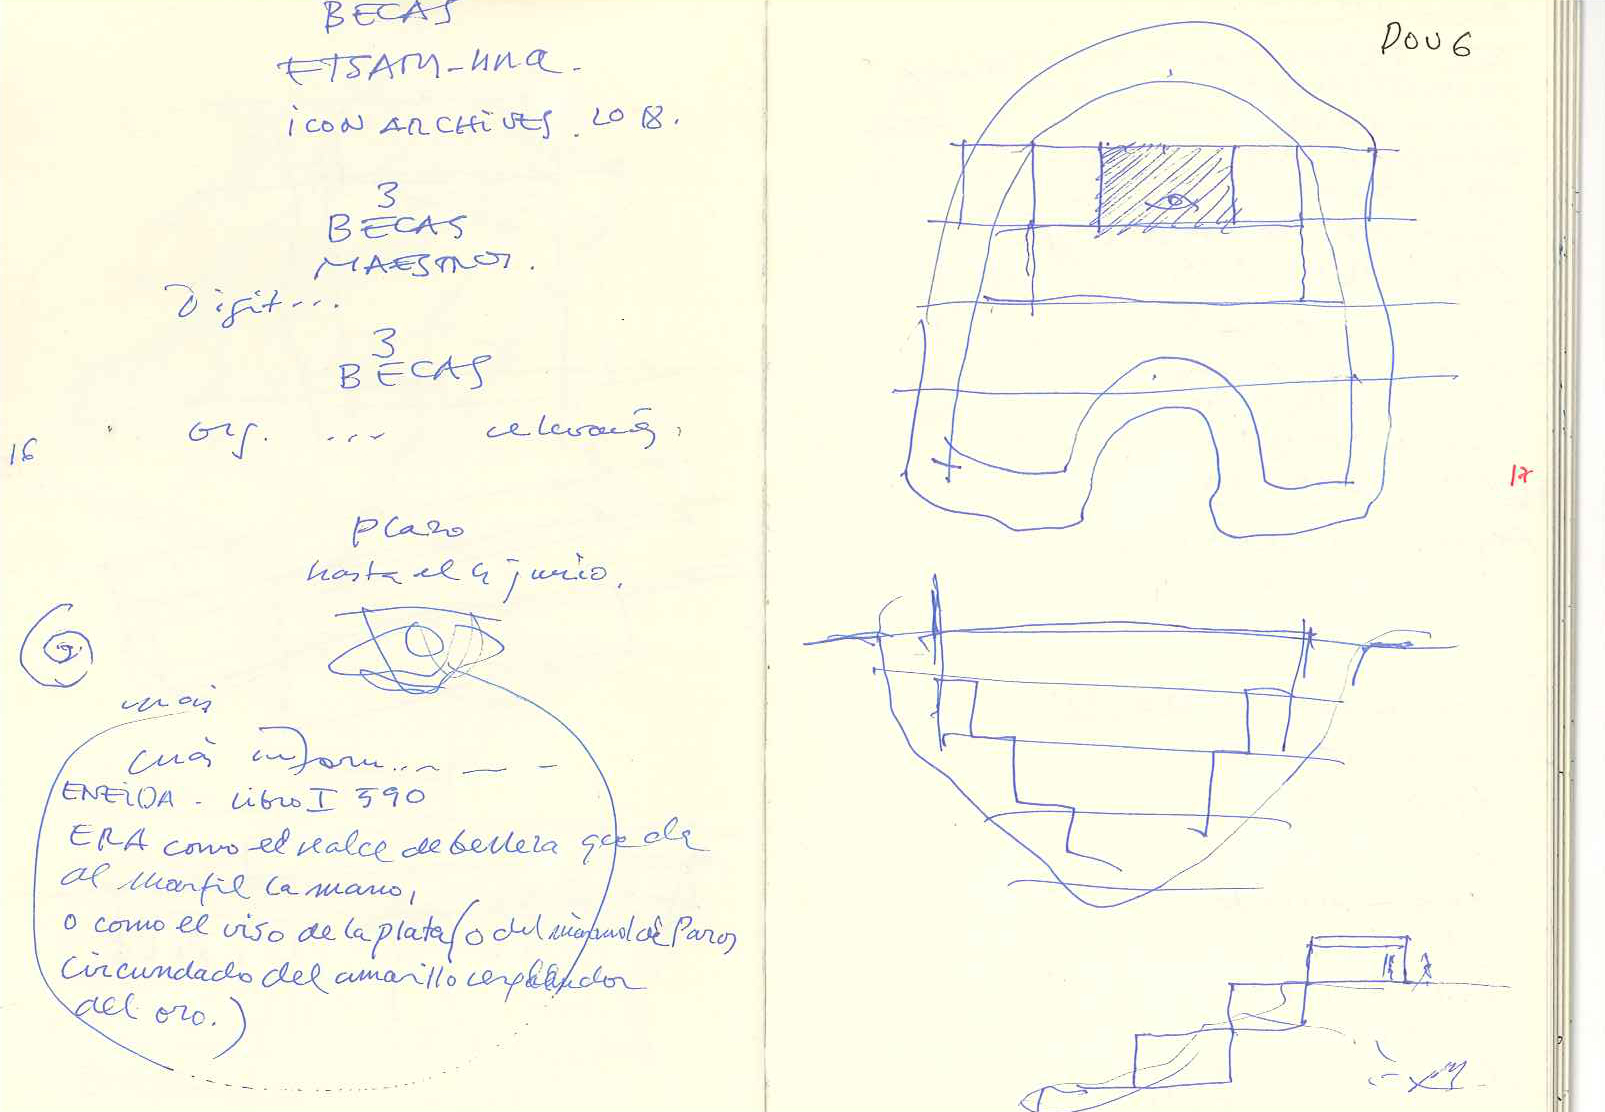 BECAS
ETSAM-UNA-
ICON ARCHIVES. LOB.
3
BECAS
MAESTROS.
Digit...
3
BECAS
org. ...
16
plazo
hasta el 4 junio.
más
más inform...
ENEIDA - Libro I 590
ERA como el realce de belleza que da
al marfil la mano,
o como el viso de la plata (o del mármol de Paros
circundado del amarillo resplandor
del oro.)
DOUG
17